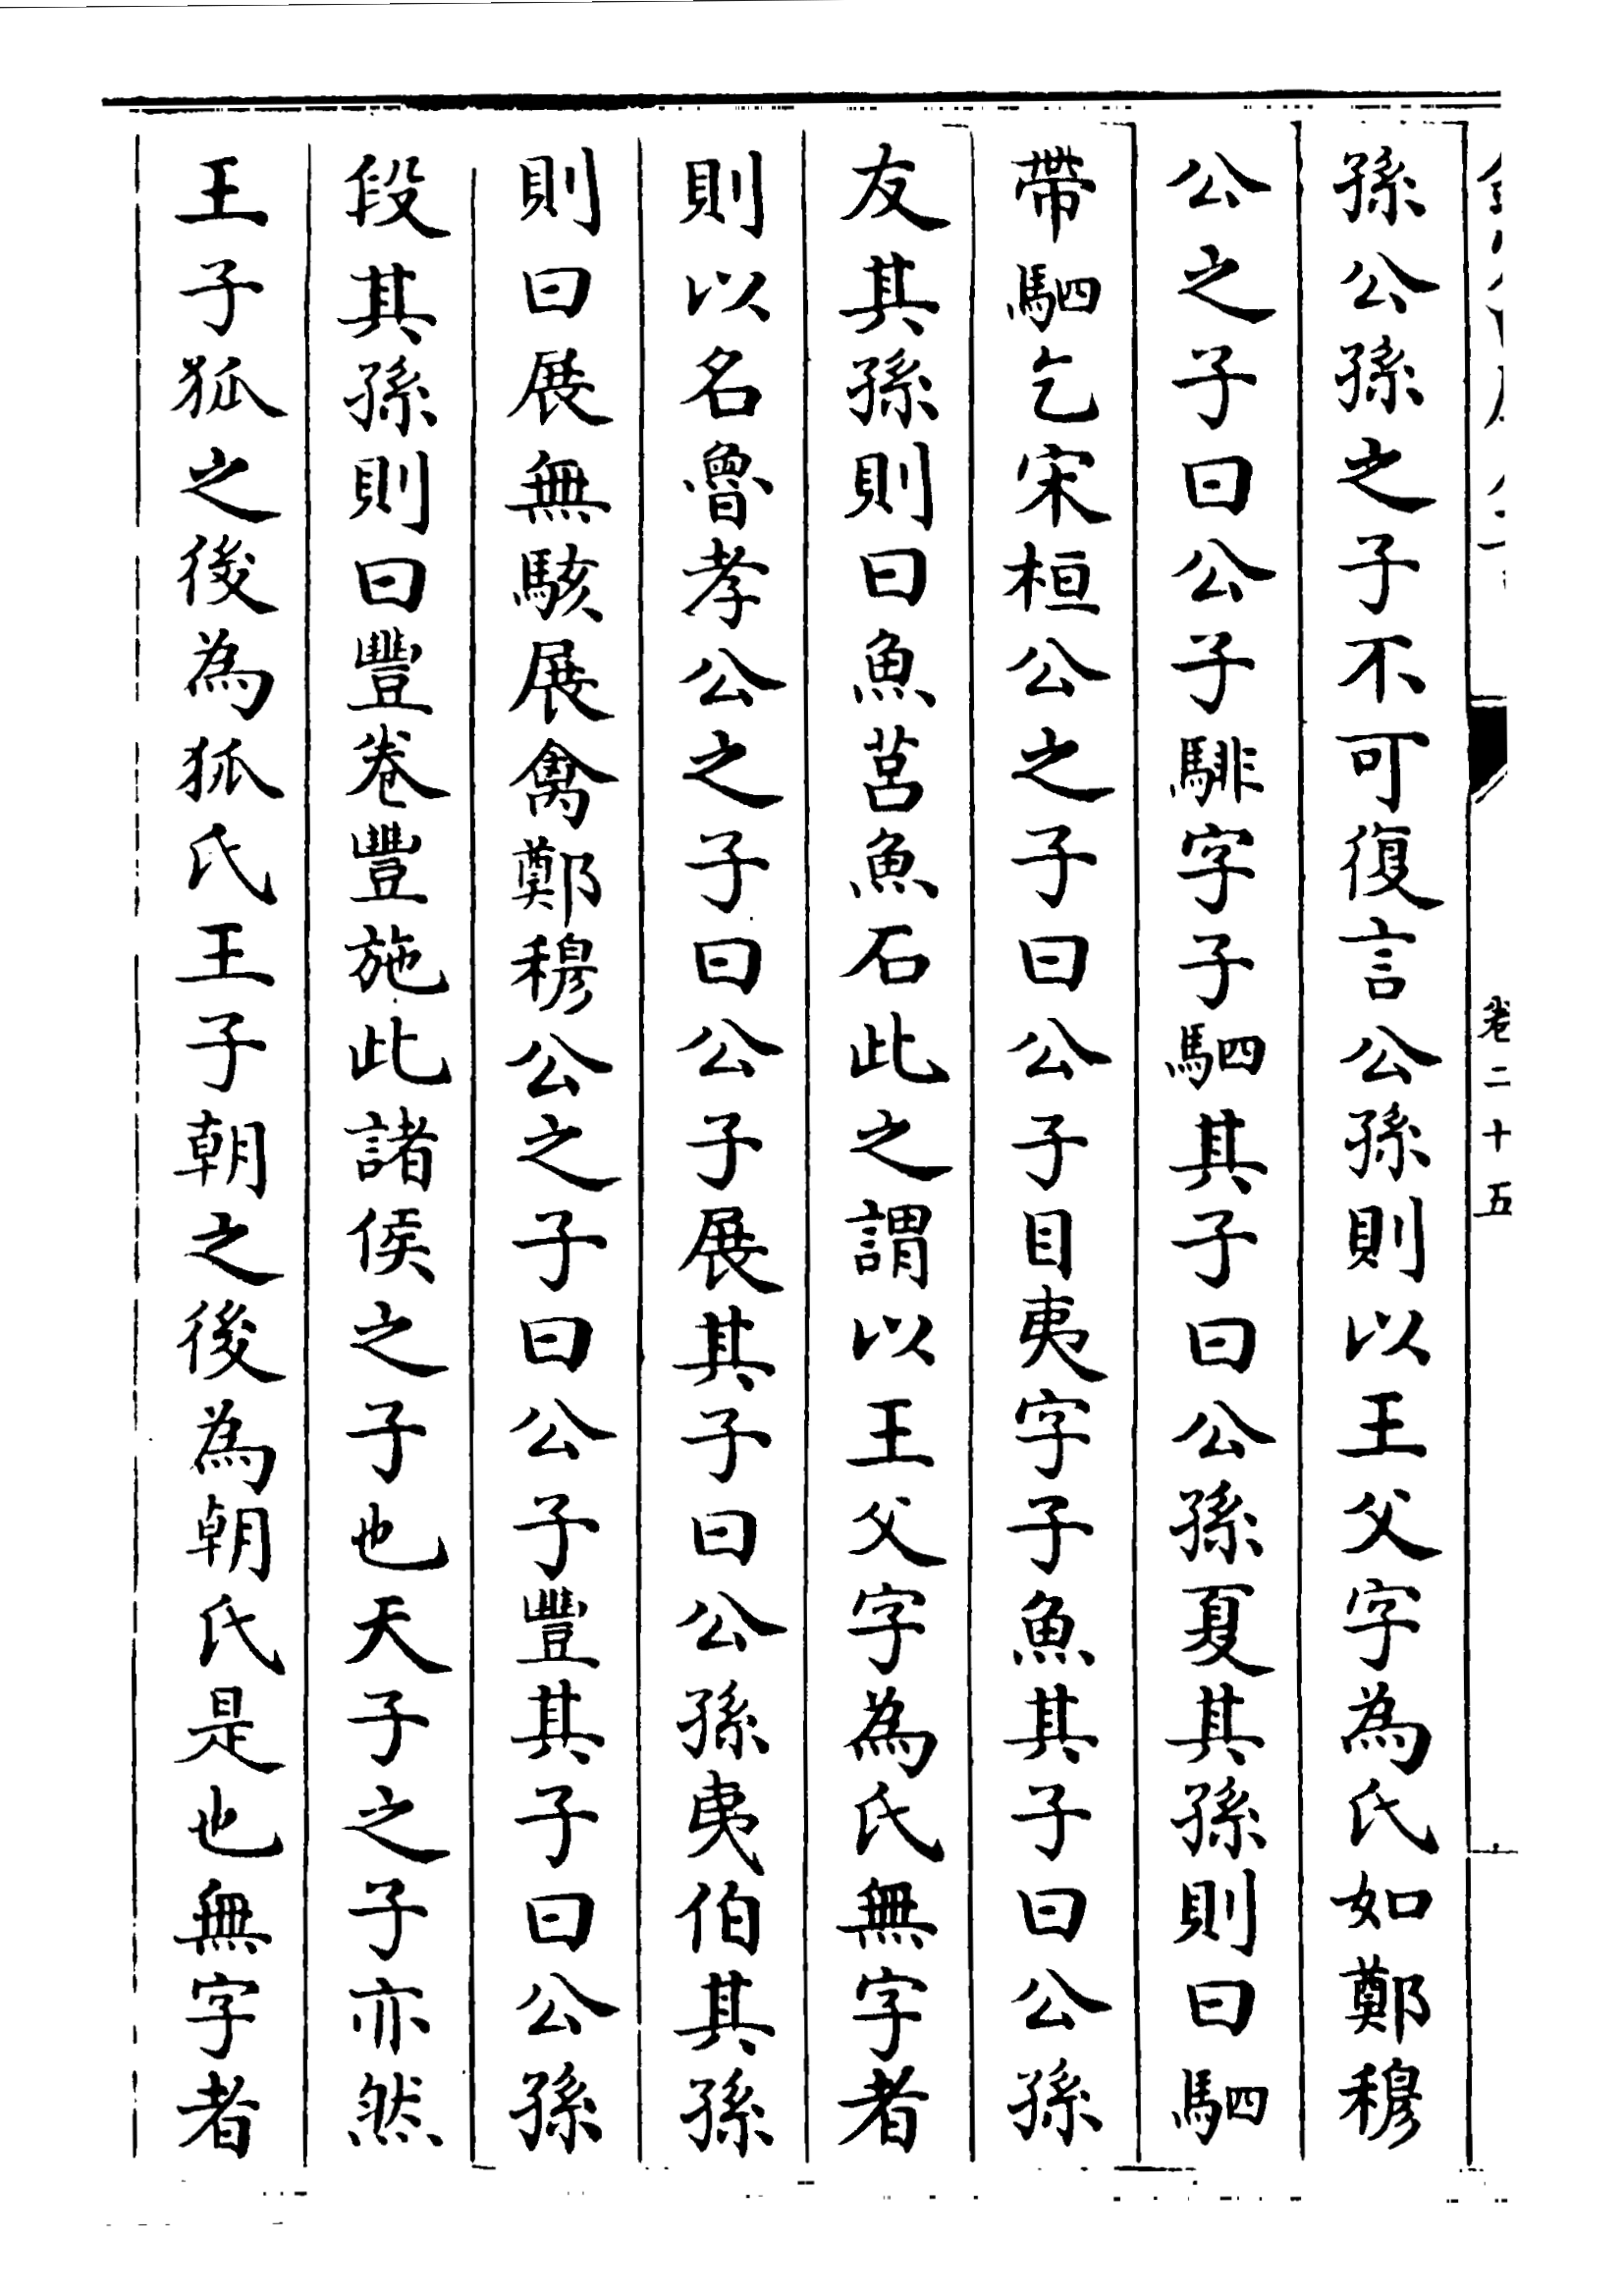 卷二十五
孫公孫之子不可復言公孫則以王父字為氏如鄭穆
公之子曰公子騑字子駟其子曰公孫夏其孫則曰駟
帶駟乞宋桓公之子曰公子目夷字子魚其子曰公孫
友其孫則曰魚莒魚石此之謂以王父字為氏無字者
則以名魯孝公之子曰公子展其子曰公孫夷伯其孫
則曰展無駭展禽鄭穆公之子曰公子豐其子曰公孫
段其孫則曰豐卷豐施此諸侯之子也天子之子亦然
王子狐之後為狐氏王子朝之後為朝氏是也無字者